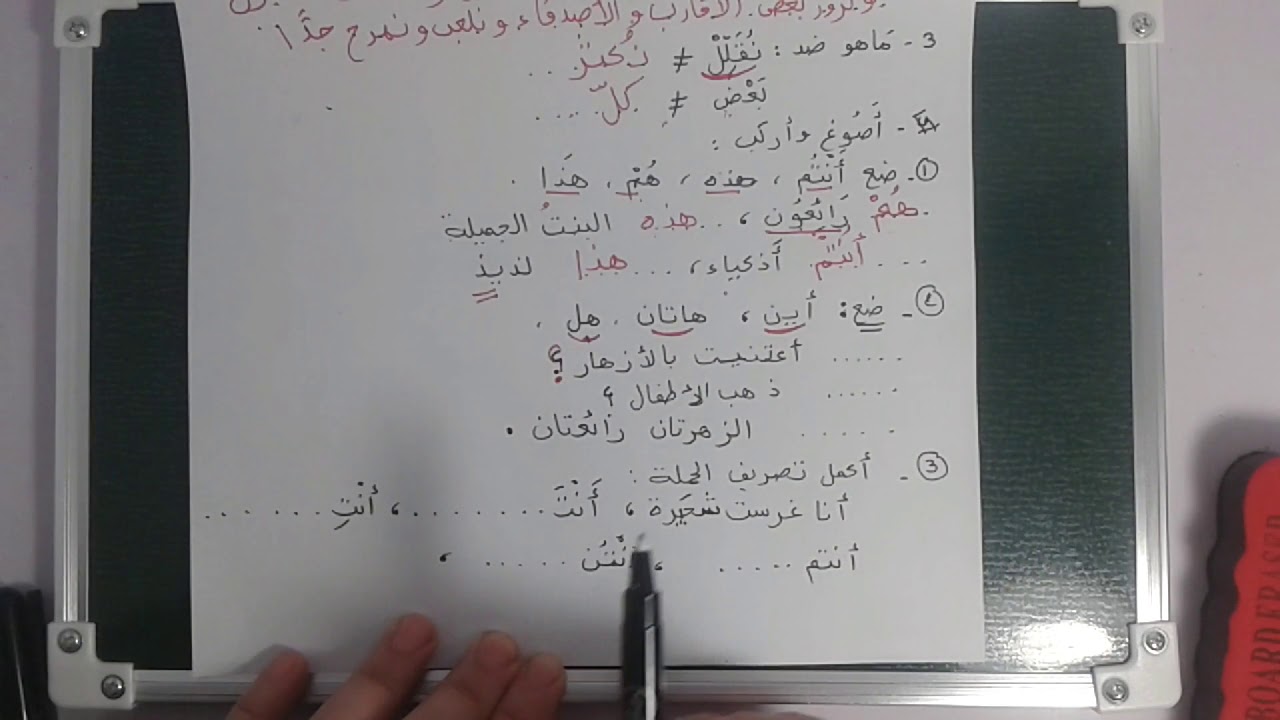 بعض الأقارب و الأصدقاء و نلعب و نمرح جدًّا
3 - مَاهو ضد : نُقَلِّلْ ≠ نُكثر ..
بَعْضِ ≠ كلّ ....
- أَصُوغ وأركب :
① - ضع أَنْتُم ، هذه ، هُمْ ، هَذَا .
. هُمْ رَائِعُون ، .. هذه البنتُ الجميلة
... أَنْتُمْ. أَذكياء ، ... هذا لذيذ
② - ضع : أين ، هاتان . هل .
...... أعتنيت بالأزهار ؟
...... ذهب الأطفال ؟
...... الزهرتان رائعتان .
③ - أكمل تصريف الجملة :
أنا غرست شُجَيرة ، أَنْتَ ........ ، أَنْتِ .......
أنتم ..... ، أنْتُن ..... ،
BOARD ERASER